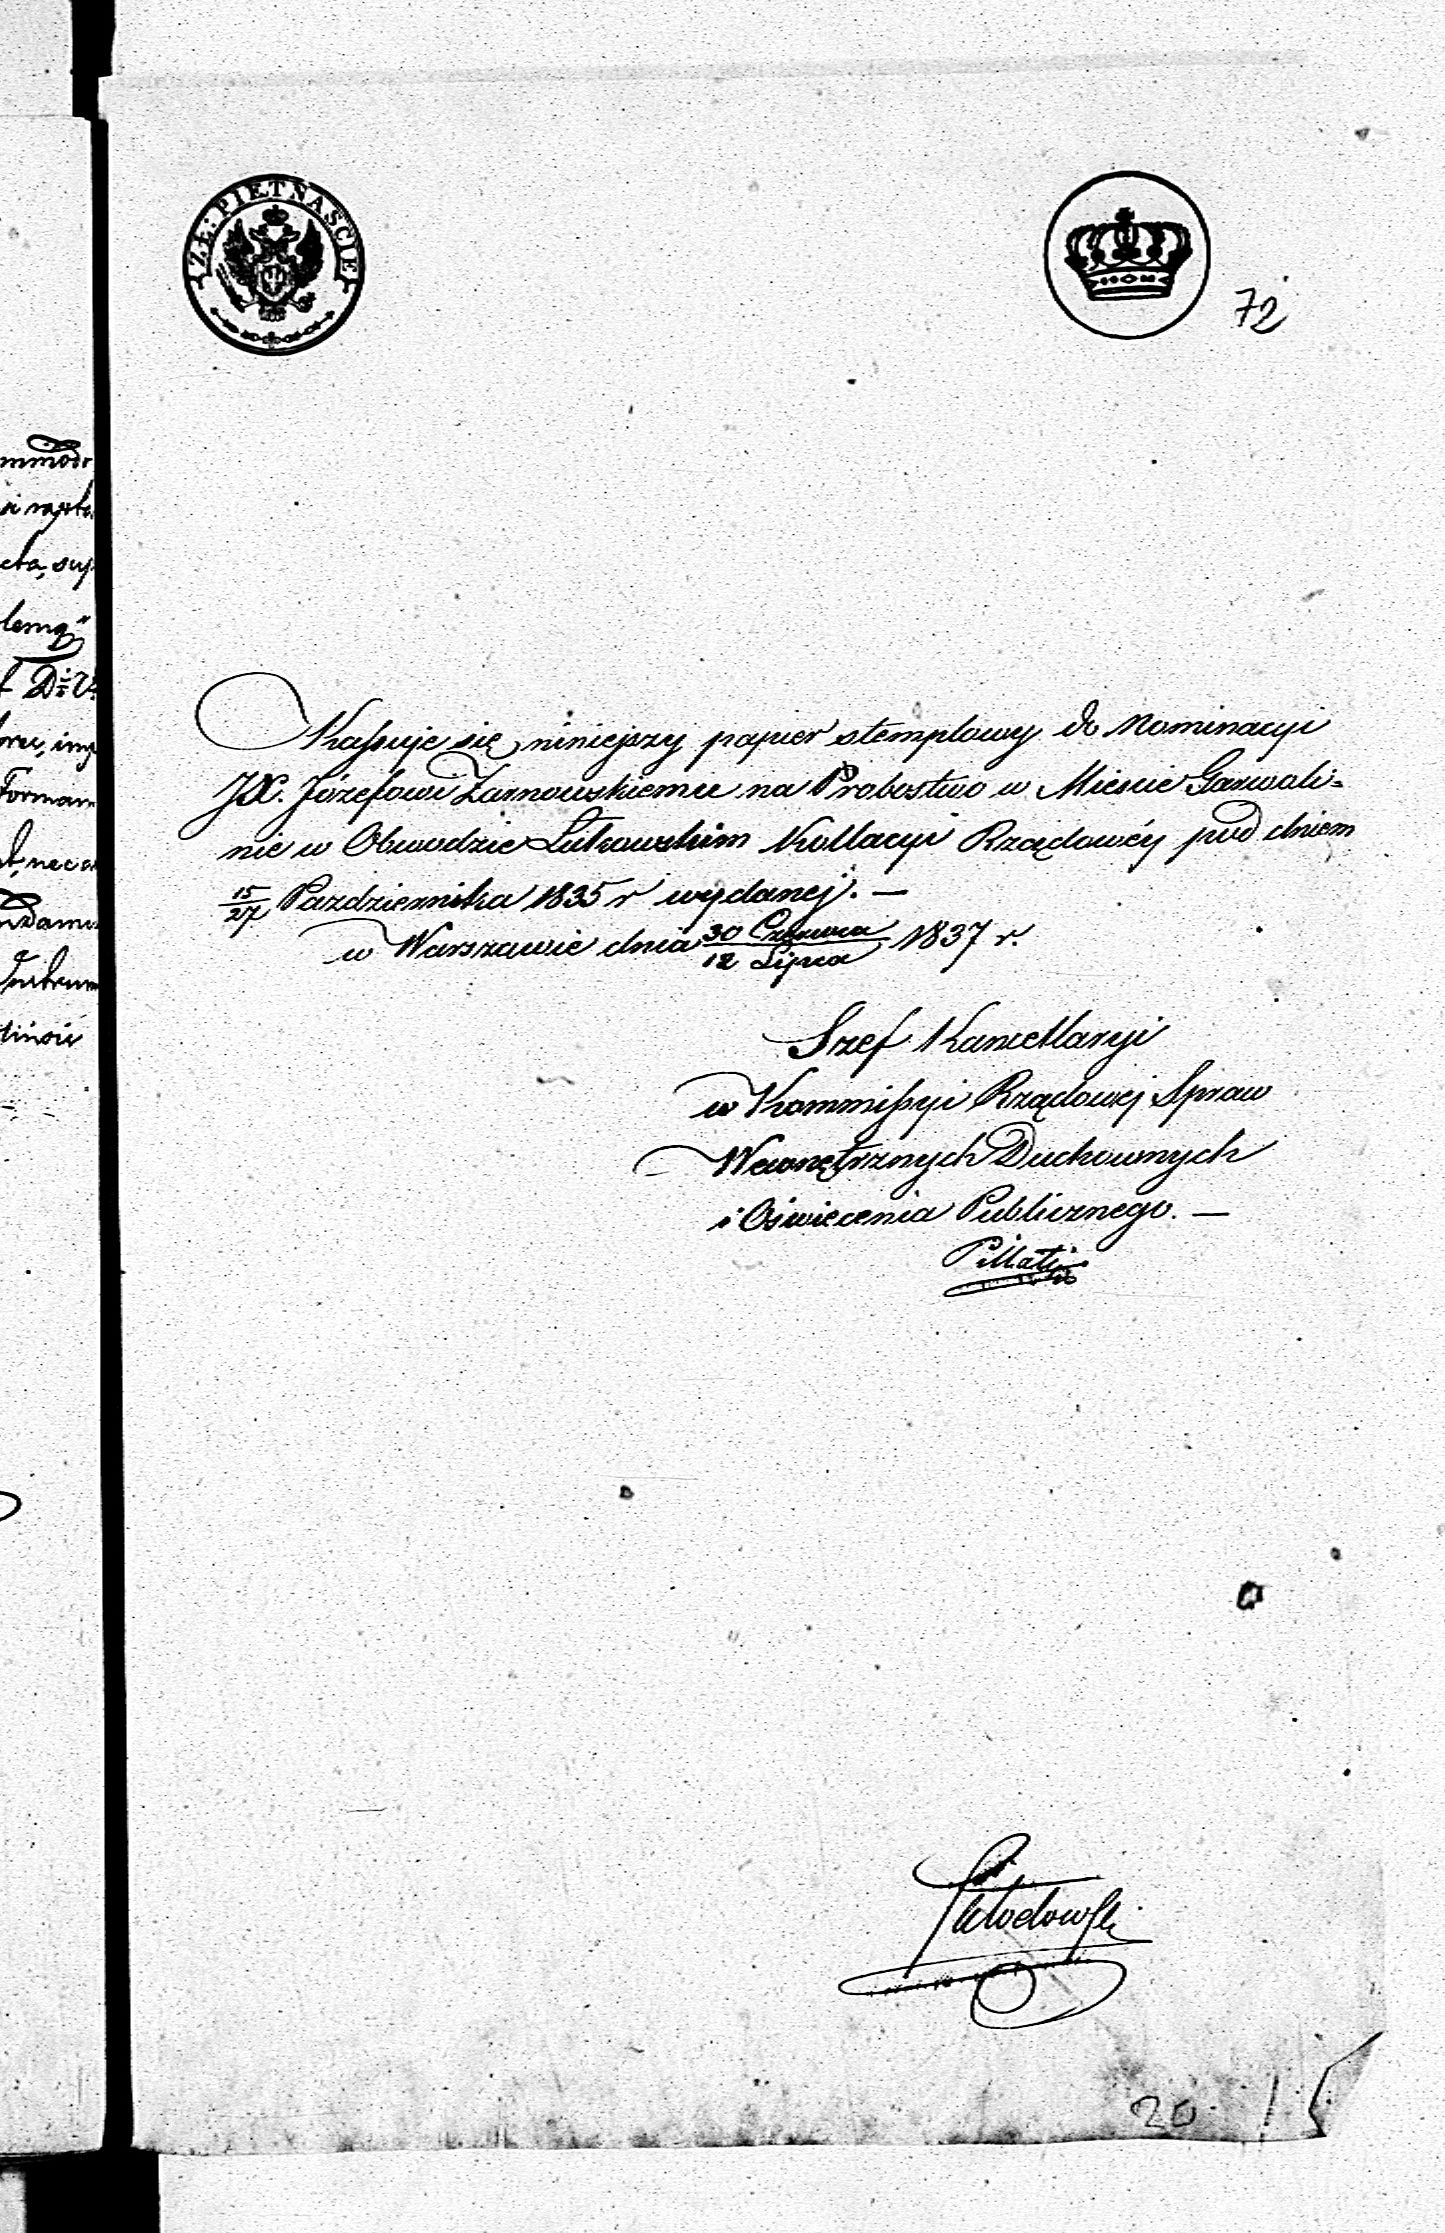 ZŁ: PIĘTNAŚCIE
72
mmodo
cta, sup
lemq
Kassuje się niniejszy papier stemplowy do Nominacyi
JX. Józefowi Żarnowskiemu na Probostwo w Mieście Garwoli=
nie w Obwodzie Łukowskim Kollacyi Rządowéy pod dniem
15/27 Pazdziernika 1835 r wydanej. —
w Warszawie dnia 30 Czerwca/12 Lipca 1837 r.
Szef Kancellaryi
w Kommissyi Rządowej Spraw
Wewnętrznych Duchownych
i Oświecenia Publicznego. —
Pillati
Skłodowski
20